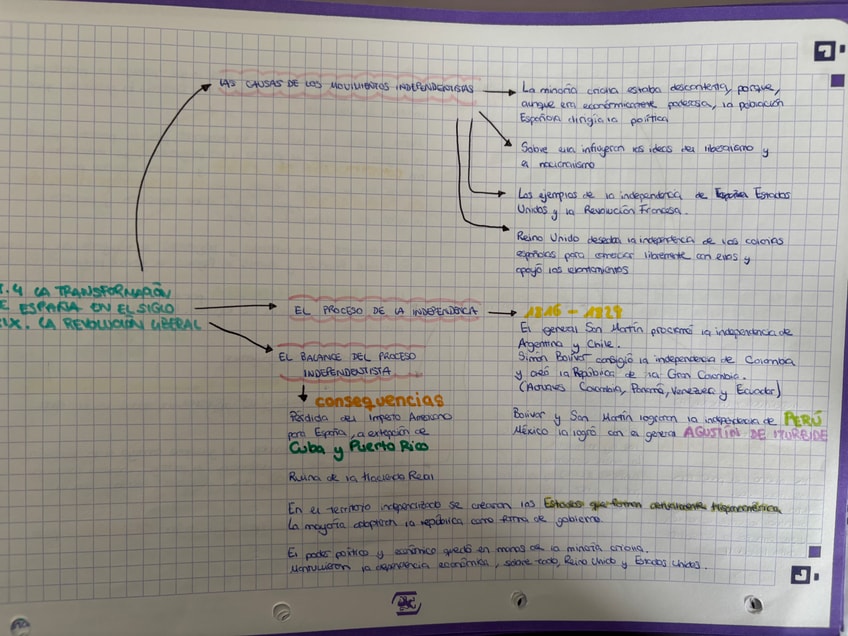 LAS CAUSAS DE LOS MOVIMIENTOS INDEPENDENTISTAS
La minoría criolla estaba descontenta, porque,
aunque era económicamente poderosa, la población
Española dirigía la política
Sobre ella influyeron las ideas del liberalismo y
el nacionalismo
Los ejemplos de la independencia de España Estados
Unidos y la Revolución Francesa.
Reino Unido deseaba la independencia de las colonias
españolas para comerciar libremente con ellas y
apoyó los levantamientos
T.4 LA TRANSFORMACIÓN
DE ESPAÑA EN EL SIGLO
XIX. LA REVOLUCIÓN LIBERAL
EL PROCESO DE LA INDEPENDENCIA
1816 - 1824
El general San Martín proclamó la independencia de
Argentina y Chile.
Simón Bolívar consiguió la independencia de Colombia
y creó la República de la Gran Colombia.
(Actuales Colombia, Panamá, Venezuela y Ecuador)
Bolívar y San Martín lograron la independencia de PERÚ
México la logró con el general AGUSTÍN DE ITURBIDE
EL BALANCE DEL PROCESO
INDEPENDENTISTA
consequencias
Pérdida del Imperio Americano
para España, a excepción de
Cuba y Puerto Rico
Ruina de la Hacienda Real
En el territorio independizado se crearon los Estados que forman actualmente Hispanoamérica
La mayoría adoptaron la república como forma de gobierno.
El poder político y económico quedó en manos de la minoría criolla.
Mantuvieron la dependencia económica, sobre todo, Reino Unido y Estados Unidos.